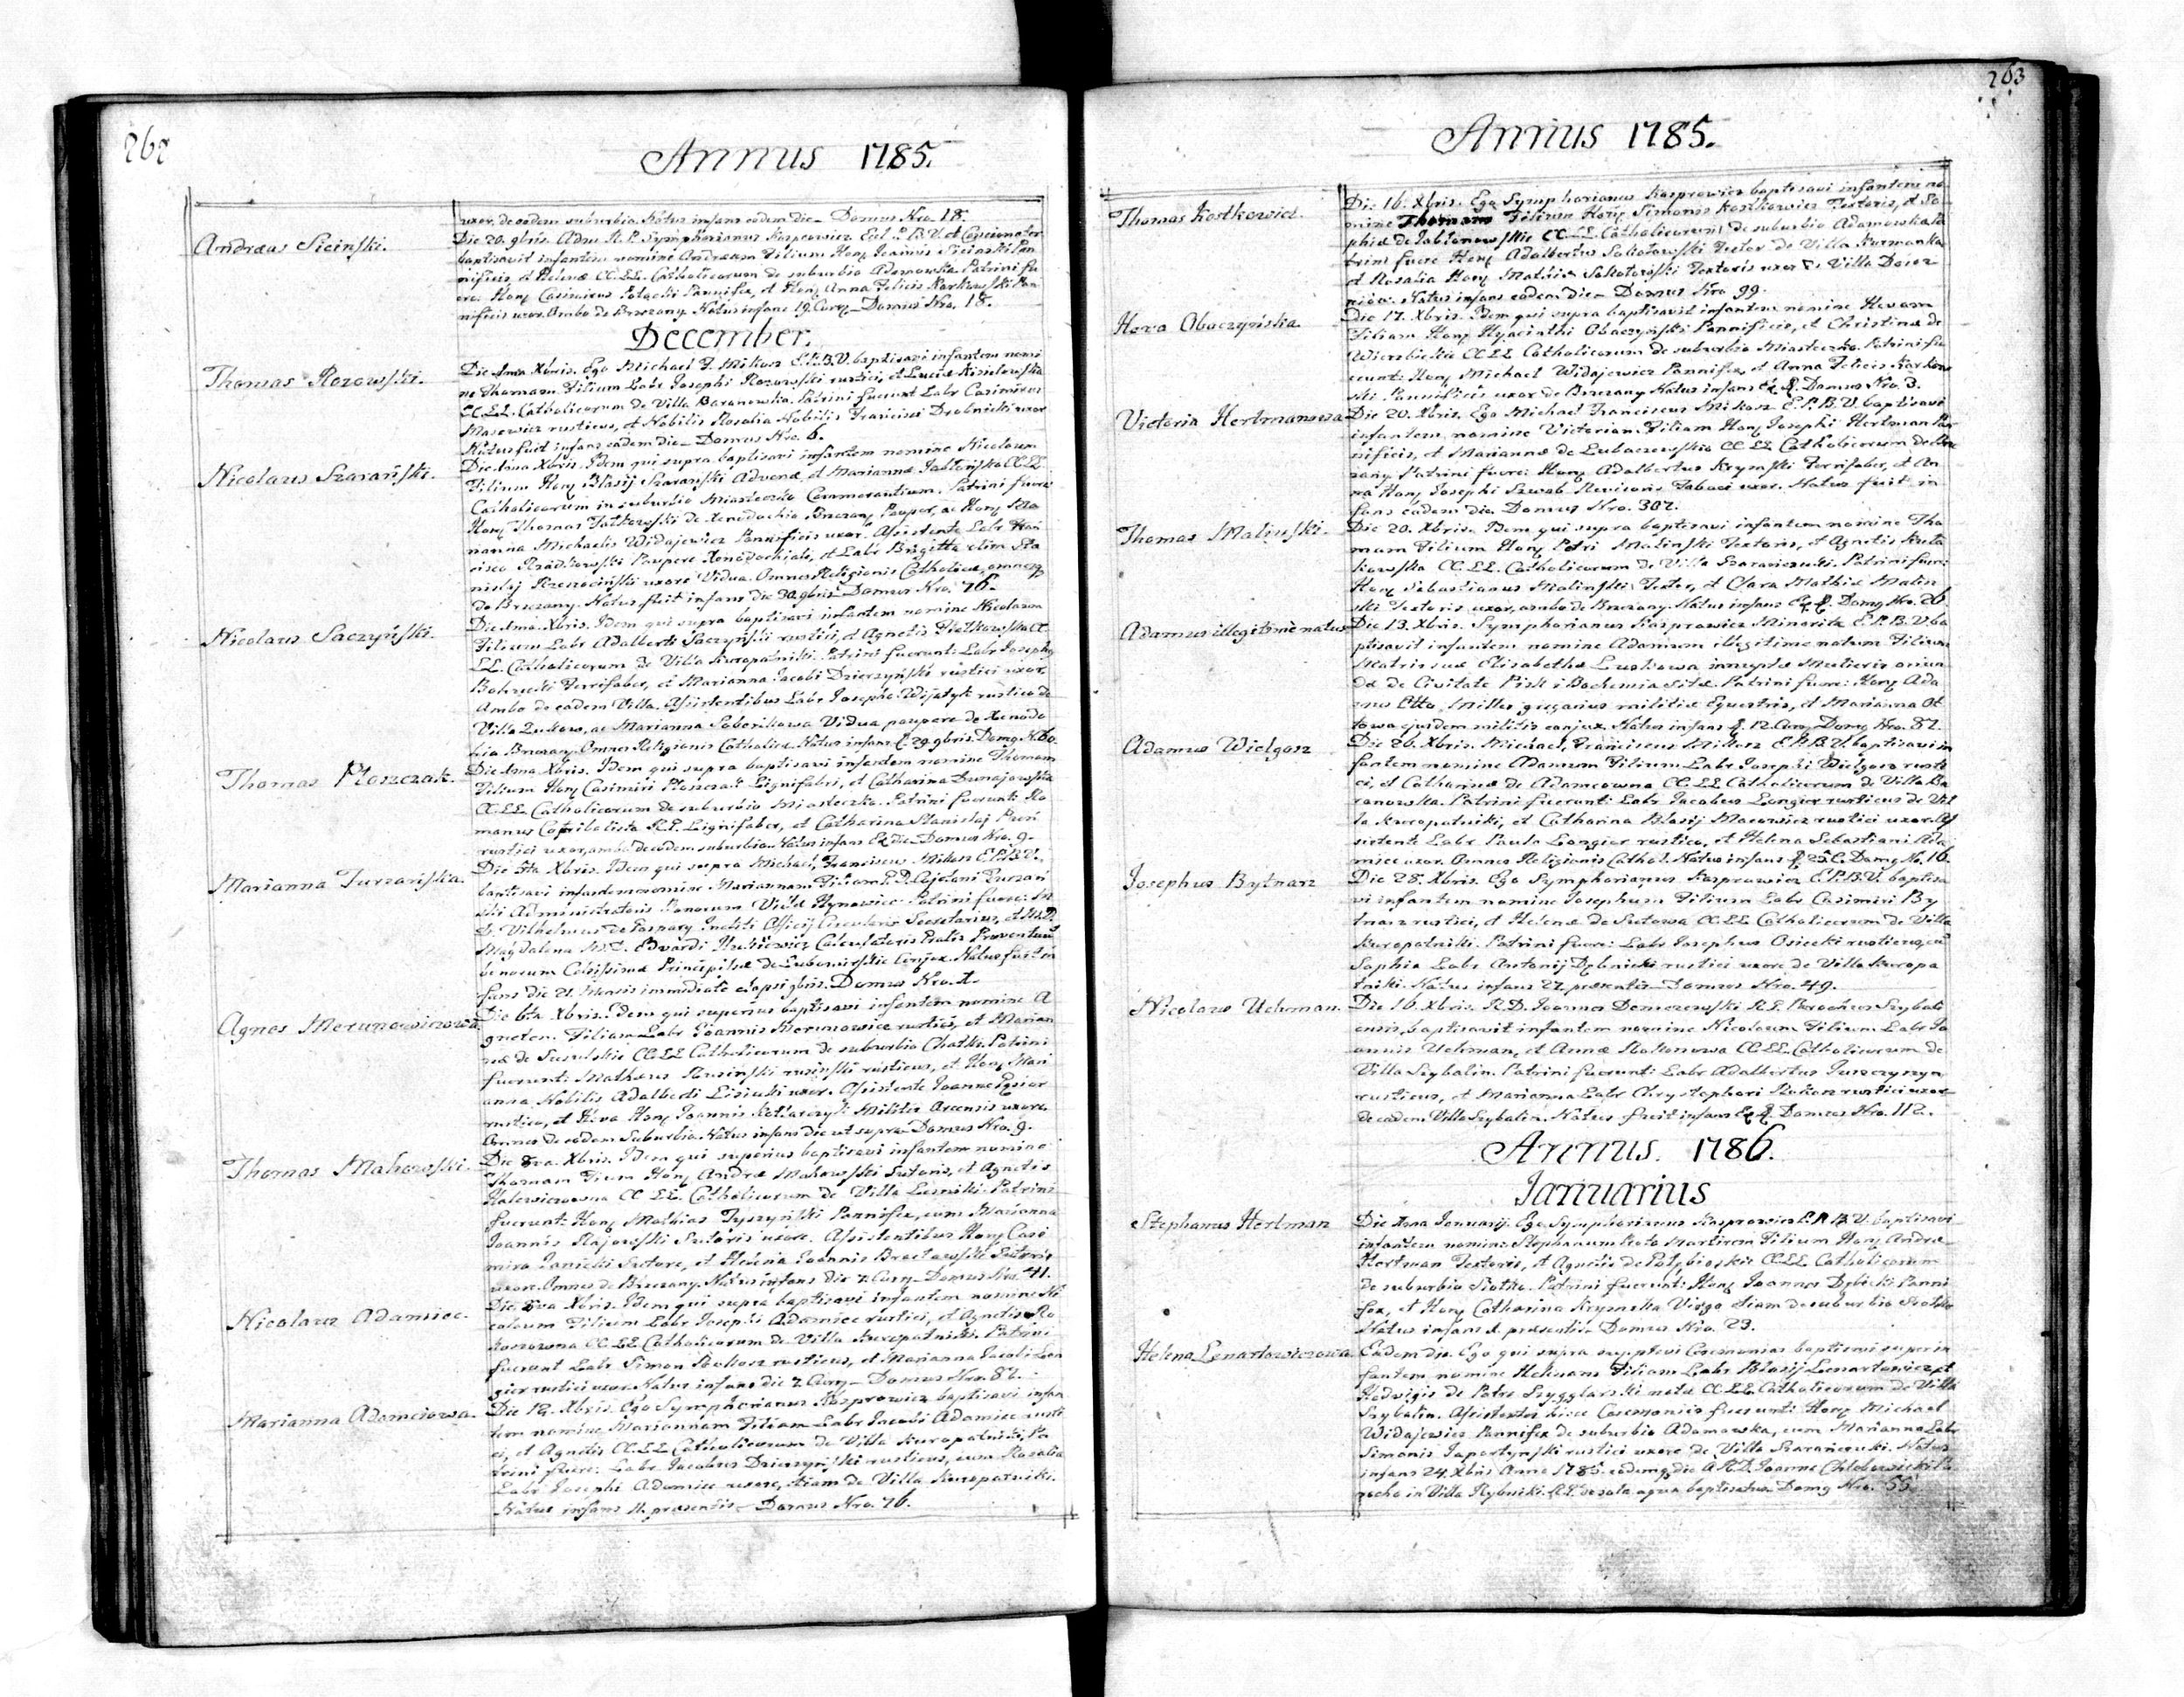 262
Annus 1785.
uxor, de eodem suburbio. Natus infans eadem die. Domus Nro. 18.
Andreas Siciński.
Die 20. 9bris. Adm R. P. Symphorianus Kasprowicz Ecl. P. B. V. et Concionator
baptisavit infantem nomine Andream Filium Hon Joannis Siciński Pan
nificis, et Helenæ CC.LL. Catholicorum de suburbio Adamowka. Patrini fu
ere: Hon Casimirus Pannifex, et Hon Anna Felicis Karkowski Pan
nificis uxor. Ambo de Brzezany. Natus infans 19. Curr. Domus Nro. 18.
December.
Thomas Rozowski.
Die 1ma Xbris. Ego Michael F. Mikosz E.P.B.V. baptisavi infantem nomi
ne Thomam. Filium Labr Josephi Rozowski rustici, et Luciæ Kisielowska
CC.LL. Catholicorum de Villa Baranowka. Patrini fuerunt Labr Casimirus
Macowicz rusticus, et Nobilis Rosalia Nobilis Francisci Drobnicki uxor
Natus fuit infans eadem die. Domus Nro. 6.
Nicolaus Szarański.
Die 1ma Xbris. Idem qui supra baptisavi infantem nomine Nicolaum
Filium Hon Blasij Szarański Advenæ, et Mariannæ CC.LL.
Catholicorum in suburbio Miasteczko Commorantium. Patrini fuere
Hon Thomas de Xenodochio Brzezany Pauper, ac Hon Ma
rianna Michaelis Widajewicz Pannificis uxor. Assistente Labr Fran
cisco Paupere Xenodochiali, et Labr Brigitta olim Sta
nislaj uxore Vidua. Omnes Religionis Catholicæ, omnesq
de Brzezany. Natus fuit infans die 30. 9bris. Domus Nro. 76.
Nicolaus Saczyński.
Die 1ma Xbris. Idem qui supra baptisavi infantem nomine Nicolaum
Filium Labr Adalberti Saczyński rustici, et Agnetis CC
LL. Catholicorum de Villa Kuropatniki. Patrini fuerunt: Labr Josephus
Ferrifaber, et Marianna Jacobi Dzierzyński rustici uxor.
Ambo de eadem Villa. Assistentibus Labr Josepho rustico de
Villa Zukow, ac Marianna Vidua paupere de Xenodo
chio Brzezany. Omnes Religionis Catholicæ. Natus infans 29. 9bris. Dom N. 60.
Thomas Płoszczak.
Die 1ma Xbris. Idem qui supra baptisavi infantem nomine Thomam
Filium Hon Casimiri Płoszczak Lignifabri, et Catharina Dunajowska
CC.LL. Catholicorum de suburbio Miasteczko. Patrini fuerunt: Ro
manus R.G. Lignifaber, et Catharina Stanislaj
rustici uxor, ambo de eodem suburbio. Natus infans Ea die. Domus Nro. 9.
Marianna Turzańska.
Die 5ta Xbris. Idem qui supra Michael Franciscus Mikosz E.P.B.V.
baptisavi infantem nomine Mariannam Filiam P. D. Cajetani Turzań
ski Administratoris Bonorum Villæ Hynowice. Patrini fuere: M.
D. Vilhelmus de Inclyti Officij Circularis Secretarius, et M.D.
Magdalena M. D. Edvardi Calculatoris Proventuum
bonorum Celsissimæ Principissæ de Lubomirskie Conjux. Natus fuit in
fans die 21. Mensis immediate elapsi 9bris. Domus Nro. 1.
Agnes Merunowiczowa.
Die 6ta Xbris. Idem qui superius baptisavi infantem nomine A
gnetem. Filiam Labr Joannis Merunowicz rustici, et Marian
næ de CC.LL Catholicorum de suburbio Chatki. Patrini
fuerunt: Mathæus Rusiński rusticus, et Hon Mari
anna Nobilis Adalberti uxor. Assistente Joanne
rustico, et Heva Hon Joannis Militis Arcensis uxore
Omnes de eodem Suburbio. Natus infans die ut supra. Domus Nro. 9.
Thomas Makowski.
Die 8va. Xbris. Idem qui superius baptisavi infantem nomine
Thomam Fium Hon Andreæ Makowski Sutoris, et Agnetis
CC LL. Catholicorum de Villa Lesniki. Patrini
fuerunt: Hon Mathias Tyszyński Pannifex, cum Marianna
Joannis Sutoris uxore. Assistentibus Hon Casi
miro Janicki Sutore, et Helena Joannis Sutoris
uxor. Omnes de Brzezany. Natus infans die 7. Curr. Domus Nro. 41.
Nicolaus Adamiec.
Die 8va Xbris. Idem qui supra baptisavi infantem nomine Ni
colaum Filium Labr Josephi Adamiec rustici, et Agnetis Ro
koszowna CC LL Catholicorum de Villa Kuropatniki. Patrini
fuerunt Labr Simon rusticus, et Marianna Jacobi Lon
gier rustici uxor. Natus infans die 7. Curr. Domus Nro. 82.
Marianna Adamciowa.
Die 12. Xbris. Ego Symphorianus Kasprowicz baptisavi infan
tem nomine Mariannam Filiam Labr Jacobi Adamiec rusti
ci, et Agnetis CC.LL Catholicorum de Villa Kuropatniki. Pa
trini fuere: Labr Jacobus Dzierzyński rusticus, cum Rosalia
Labr Josephi Adamiec uxore, etiam de Villa Kuropatniki.
Natus infans 11. præsentis. Domus Nro. 76.
263
Annus 1785.
Thomas Kostkowicz.
Die 16. Xbris. Ego Symphorianus Kasprowicz baptisavi infantem no
mine Thomam Filium Hon Simonis Kostkowicz Textoris, et So
phiæ de Jabłonowskie CC.LL. Catholicorum de suburbio Adamowka. Pa
trini fuere Hon Adalbertus Sokołowski Textor de Villa
et Rosalia Hon Mathiæ Textoris uxor Villa
Natus infans eadem die. Domus Nro 99.
Heva Obaczyńska.
Die 17. Xbris. Idem qui supra baptisavit infantem nomine Hevam
Filiam Hon Hyacinthi Obaczyński Pannificis, et Christinæ de
Wierzbickie CC.LL Catholicorum de suburbio Miasteczko. Patrini fu
erunt: Hon Michael Widajewicz Pannifex, et Anna Felicis Karkow
ski Pannificis uxor de Brzezany. Natus infans Domus Nro. 3.
Victoria Hertmanowa
Die 20. Xbris. Ego Michael Franciscus Mikosz E.P.B.V. baptisavi
infantem nomine Victoriam Filiam Hon Josephi Hertman Pan
nificis, et Mariannæ de Lubaczewskie CC LL Catholicorum de Brze
zany. Patrini fuere: Hon Adalbertus Krymski Ferrifaber, et An
na Hon Josephi Szwab Revisoris Tabaci uxor. Natus fuit in
fans eadem die. Domus Nro. 302.
Thomas Malinski.
Die 20. Xbris. Idem qui supra baptisavi infantem nomine Tho
mam Filium Hon Petri Malinski Textoris, et Agnetis
CC.LL. Catholicorum de Villa Szaranczuki. Patrini fuere:
Hon Sebastianus Malinski Textor, et Clara Mathiæ Malin
ski Textoris uxor, ambo de Brzezany. Natus infans Dom Nro. 26.
Adamus illegitimè natus
Die 13. Xbris. Symphorianus Kasprowicz Minorita E.P.B.V. ba
ptisavit infantem nomine Adamum illegitime natum Filium
Matris suæ Elisabethæ innuptæ Mulieris oriun
dæ de Civitate Pisk i Bochemia sitæ. Patrini fuere: Hon Ada
mus Otto Miller gregarius militiæ Equestris, et Marianna Ot
towa ejusdem militis conjux. Natus infans 12. Curr. Dom Nro. 82.
Adamus Wielgosz
Die 26. Xbris. Michael Franciscus Mikosz E.P.B.V. baptisavi in
fantem nomine Adamum Filium Labr Josephi Wielgosz rusti
ci, et Catharinæ de Adamcowna CC LL Catholicorum de Villa Ba
ranowka. Patrini fuerunt: Labr Jacobus Longier rusticus de Vil
la Kuropatniki, et Catharina Blasij Macowicz rustici uxor. As
sistente Labr Paulo Longier rustico, et Helena Sebastiani Ada
miec uxor. Omnes Religionis Cathol. Natus infans 25. C. Dom No. 16.
Josephus Bytnarz
Die 28. Xbris. Ego Symphorianus Kasprowicz E.P.B.V. baptisa
vi infantem nomine Josephum Filium Labr Casimiri By
tnarz rustici, et Helenæ de CC.LL Catholicorum de Villa
Kuropatniki. Patrini fuere: Labr Josephus Osiecki rusticus, cū
Sophia Labr Antonij Dębnicki rustici uxore de Villa Kuropa
tniki. Natus infans 27. præsentis. Domus Nro. 49.
Nicolaus Uchman.
Die 16. Xbris. R. D. Joannes Demczewski R.G. Parochus Szybali
ensis, baptisavit infantem nomine Nicolaum Filium Labr Jo
annis Uchman, et Annæ CC.LL. Catholicorum de
Villa Szybalin. Patrini fuerunt: Labr Adalbertus Juszczyszyn
rusticus, et Marianna Labr Chrystophori rustici uxor
de eadem Villa Szybalin. Natus fuit infans Domus Nro. 112.
Annus. 1786.
Januarius
Stephanus Hertman
Die 1ma Januarij. Ego Symphorianus Kasprowicz E.P.B.V. baptisavi
infantem nomine Stephanum Proto Martirem Filium Hon Andreæ
Hertman Textoris, et Agnetis de CC.LL. Catholicorum
de suburbio Siołko. Patrini fuerunt: Hon Joannes Dębicki Panni
fex, et Hon Catharina Krymska Virgo etiam de suburbio Siołko
Natus infans 1. præsentis. Domus Nro. 23.
Helena Lenartowiczowa
Eadem die. Ego qui supra supplevi Ceremonias baptismi super in
fantem nomine Helenam Filiam Labr Blasij Lenartowicz, et
Hedwigis de Patre natæ CC.LL. Catholicorum de Villa
Szybalin. Assistentes hisce Ceremoniis fuerunt: Hon Michael
Widajewicz Pannifex de suburbio Adamowka, cum Marianna Labr
Simonis rustici uxore de Villa Szaranczuki. Natus
infans 24. Xbris Anno 1785. eademq die à R.D. Joanne Chlebowicki Pa
rocho in Villa Rybniki R.G. de sola aqua baptisatus. Dom Nro. 55.